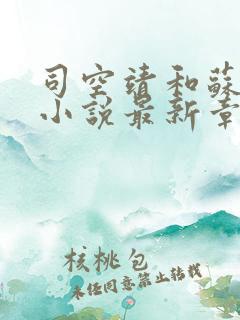 司空靖和蘇
小說最新章
核桃包
未经同意禁止转载